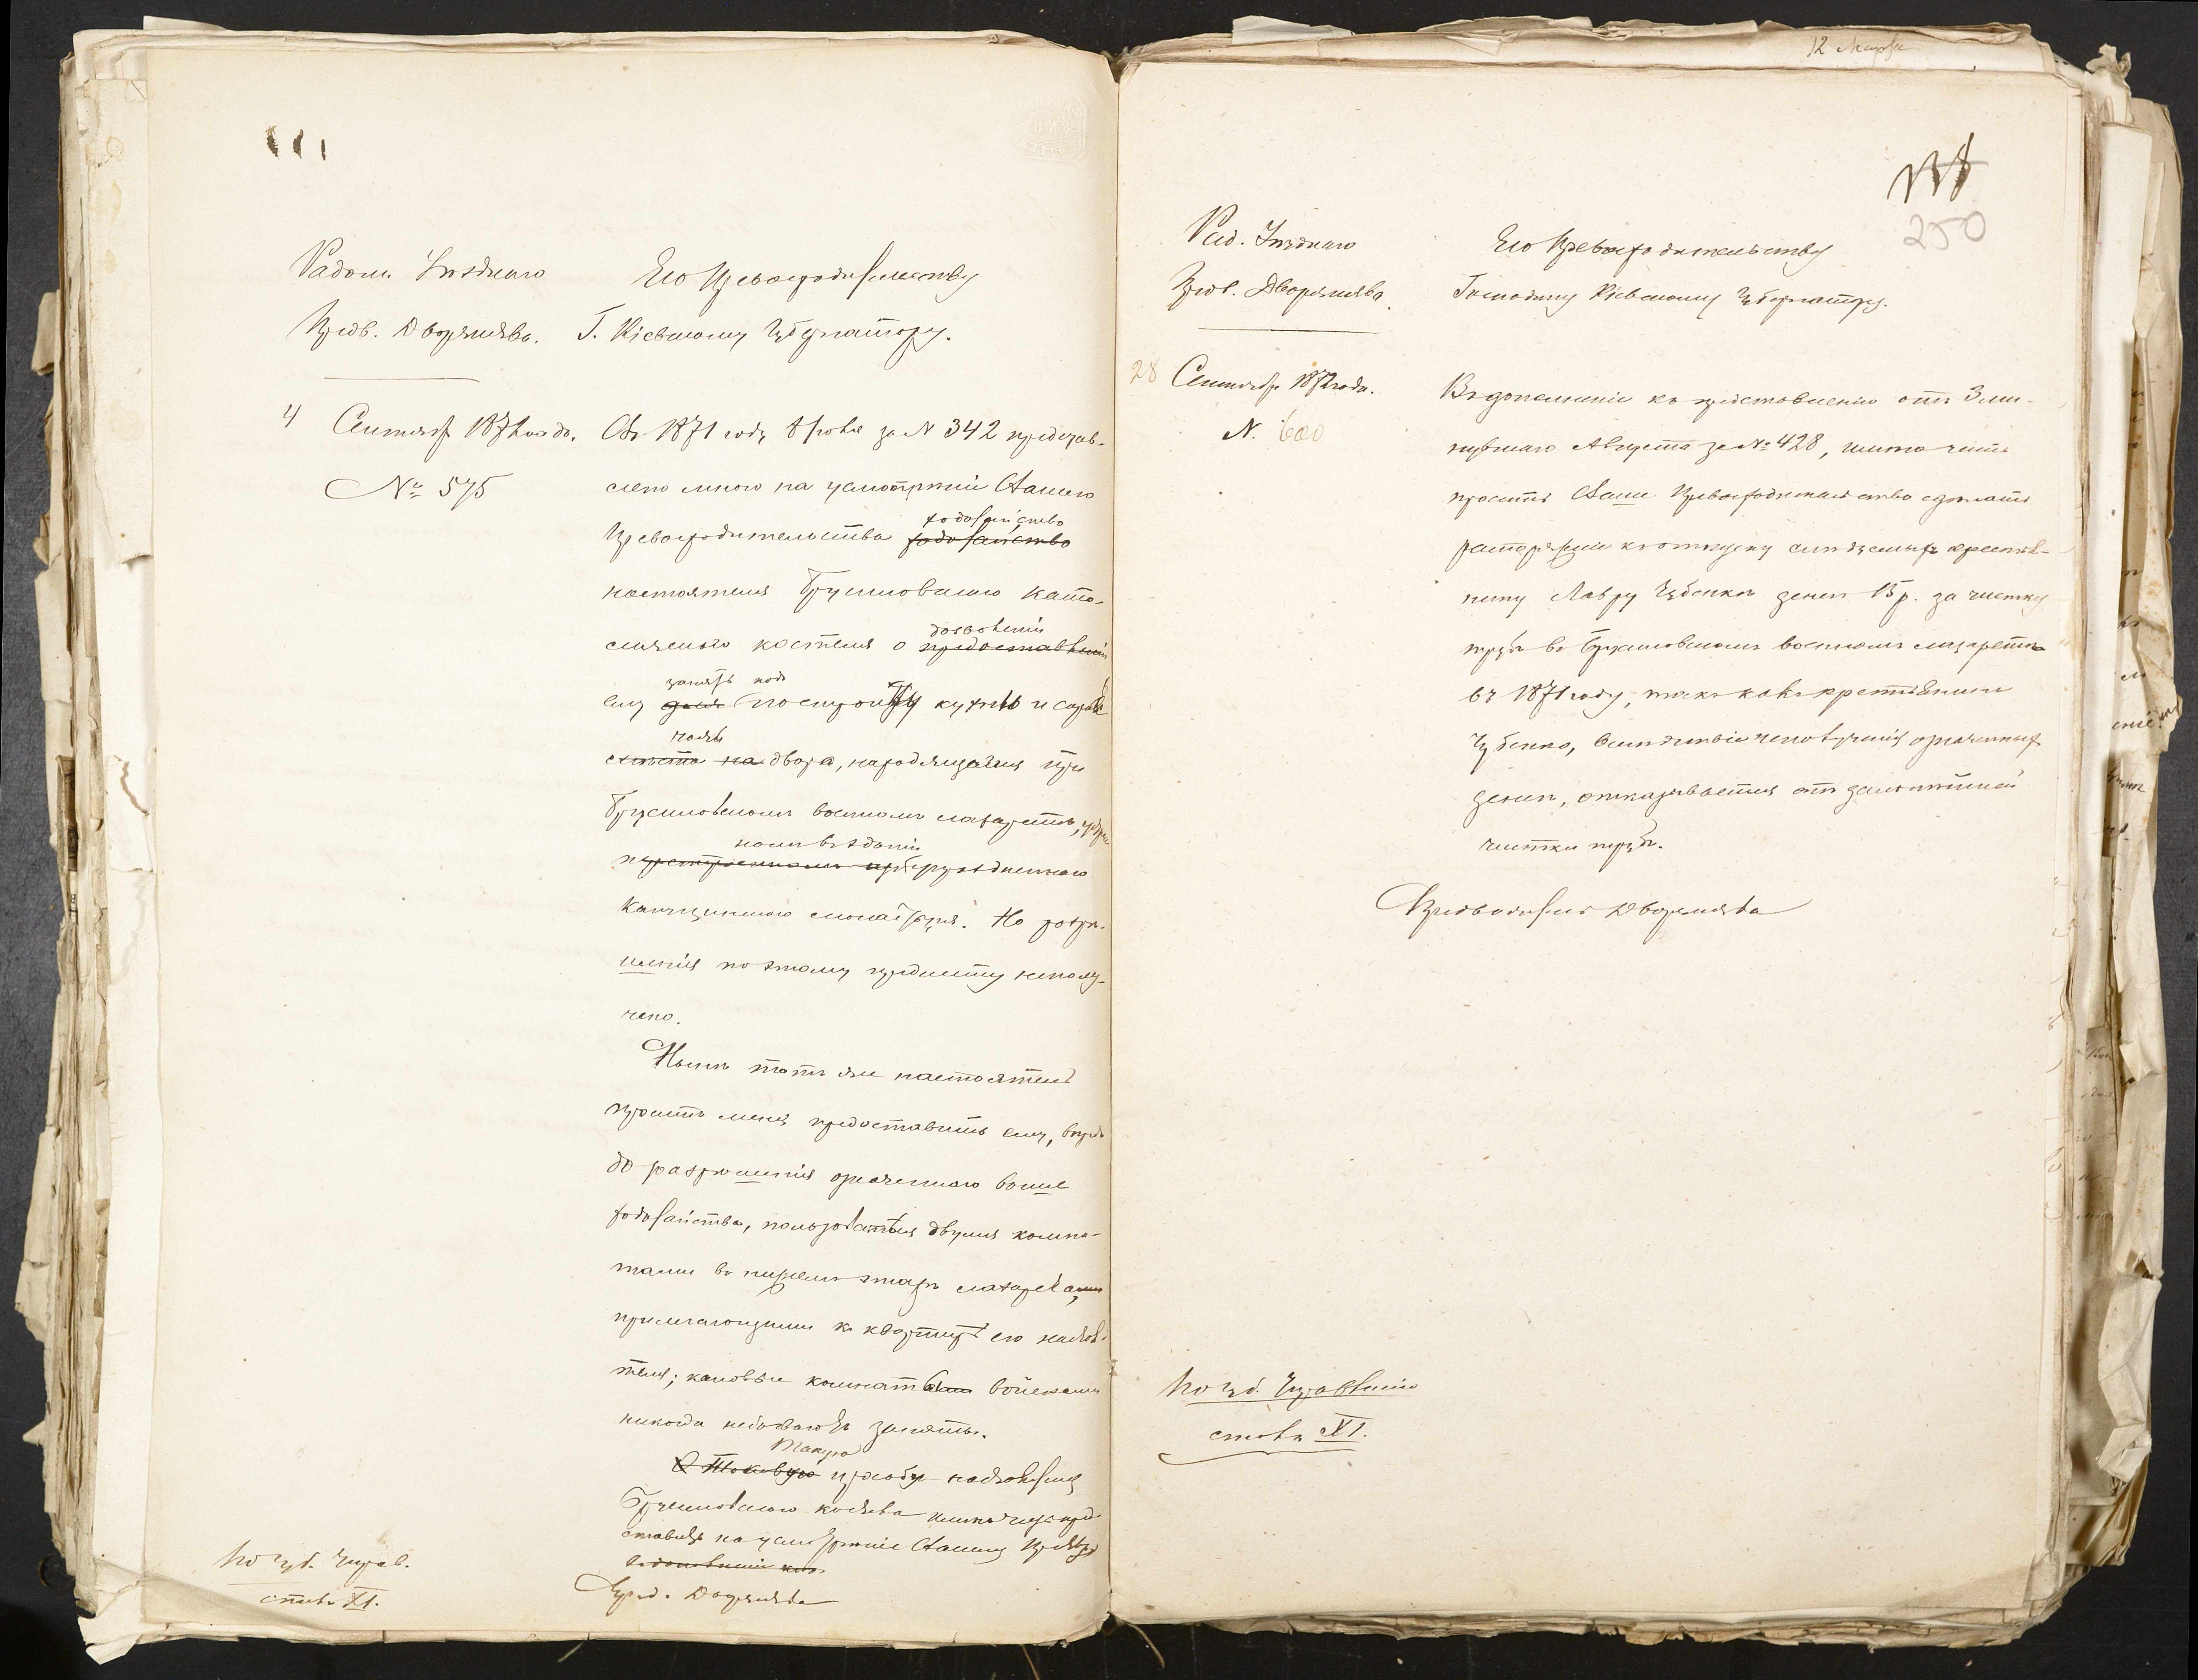 Радом. Уѣзднаго
Предв. Дворянства.
4 Сентября 1872 года.
№ 575
Его Превосходительству
Г. Кіевскому Губернатору.
Въ 1871 году за № 342 представ-
лено мною на усмотрѣніе Вашего
Превосходительства ходатайство ходатайство
настоятеля Брусиловскаго като-
лическаго костела о дозволеніи предоставленіи
ему занять подъ для постройку кухни и сарая
часть мѣста на двора, находящагося при
Брусиловскомъ военномъ лазаретѣ,
номъ въ зданіи упраздненнаго
Капуцинскаго монастыря. Но разрѣ-
шенія по этому предмету неполу-
чено.
Нынѣ тотъ же настоятель
проситъ меня предоставить ему, впредь
до разрѣшенія означеннаго выше
ходатайства, пользоваться двумя комна-
тами въ нижнемъ этажѣ лазарета,
прилегающими къ квартирѣ его настоя-
теля; каковыя комнаты войсками
никогда небываютъ заняты.
Такую О таковую прозьбу настоятеля
Брусиловскаго костела имѣю честь пред-
ставить на усмотрѣніе Вашему Превосх.
Пред. Дворянства
По Губ. Управ.
столъ XI.
12 Марта
138
250
Рад. Уѣзднаго
Предв. Дворянства.
28 Сентября 1872 года.
N. 600
Его Превосходительству
Господину Кіевскому Губернатору.
Въ дополненіе къ представленію отъ 3 ми-
нувшаго Августа за № 428, имѣю честь
просить Ваше Превосходительство сдѣлать
распоряженіе къ отпуску слѣдуемыхъ крестья-
нину Лавру Чубенкѣ денегъ 15 р. за чистку
трубъ въ Брусиловскомъ военномъ лазаретѣ
въ 1871 году, такъ какъ крестьянинъ
Чубенко, вслѣдствіе неполученія означенныхъ
денегъ, отказывается отъ дальнѣйшей
чистки трубъ.
Предводитель Дворянства
По Губ. Управленію
столъ XI.